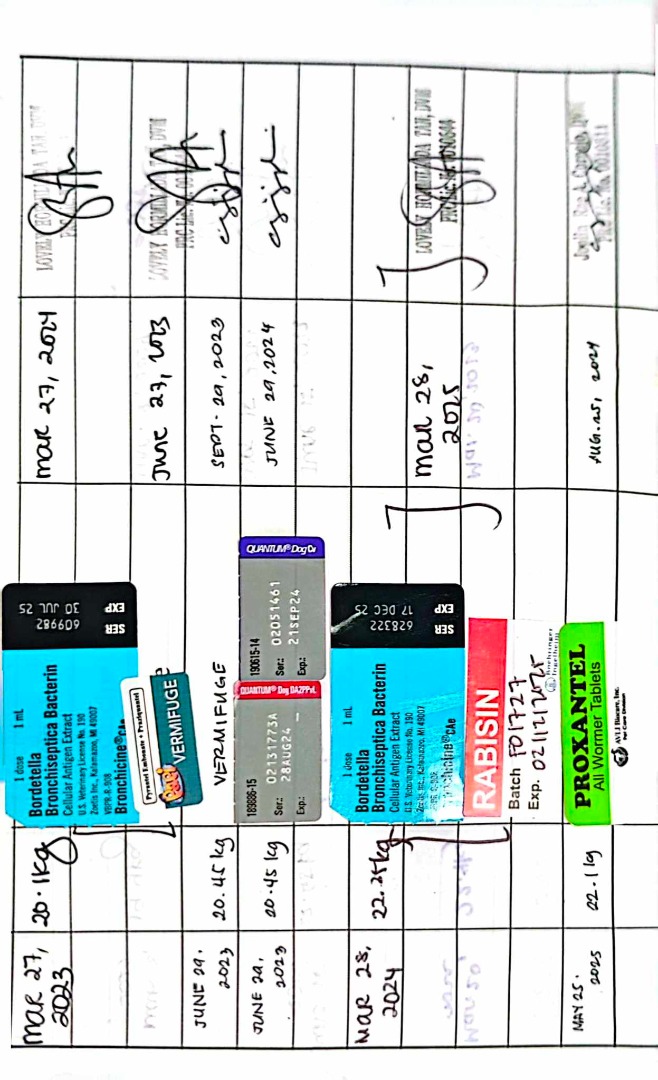 MAR 27,
2023
20.1kg
1 dose 1 mL
Bordetella
Bronchiseptica Bacterin
Cellular Antigen Extract
U.S. Veterinary License No. 190
Zoetis Inc., Kalamazoo, MI 49007
VBPR-R-908
Bronchicine®CAe
SER 609982
EXP 30 JUL 25
MAR 27, 2024
LOVELY
TAN, DVM
Pyrantel Embonate + Praziquantel
VERMIFUGE
June 27, 2023
LOVELY
DVM
JUNE 29.
2023
20.45 kg
VERMIFUGE
SEPT. 29, 2023
JUNE 29,
2023
20.45 kg
QUANTUM® Dog DA2PPvL
189886-15
Ser.: 02131773A
28AUG24
Exp.:
QUANTUM® Dog Cv
190615-14
Ser.: 02051461
Exp.: 21SEP24
JUNE 29, 2024
MAR 28,
2024
22.25kg
1 dose 1 mL
Bordetella
Bronchiseptica Bacterin
Cellular Antigen Extract
U.S. Veterinary License No. 190
Zoetis Inc., Kalamazoo, MI 49007
CAe
SER 628322
EXP 17 DEC 25
MAR 28,
2025
LOVELY
TAN, DVM
RABISIN
Batch F01727
Exp.
Boehringer
Ingelheim
MAY 25.
2025
22.1 kg
PROXANTEL
All Wormer Tablets
Pet Care Division
AUG. 25, 2024